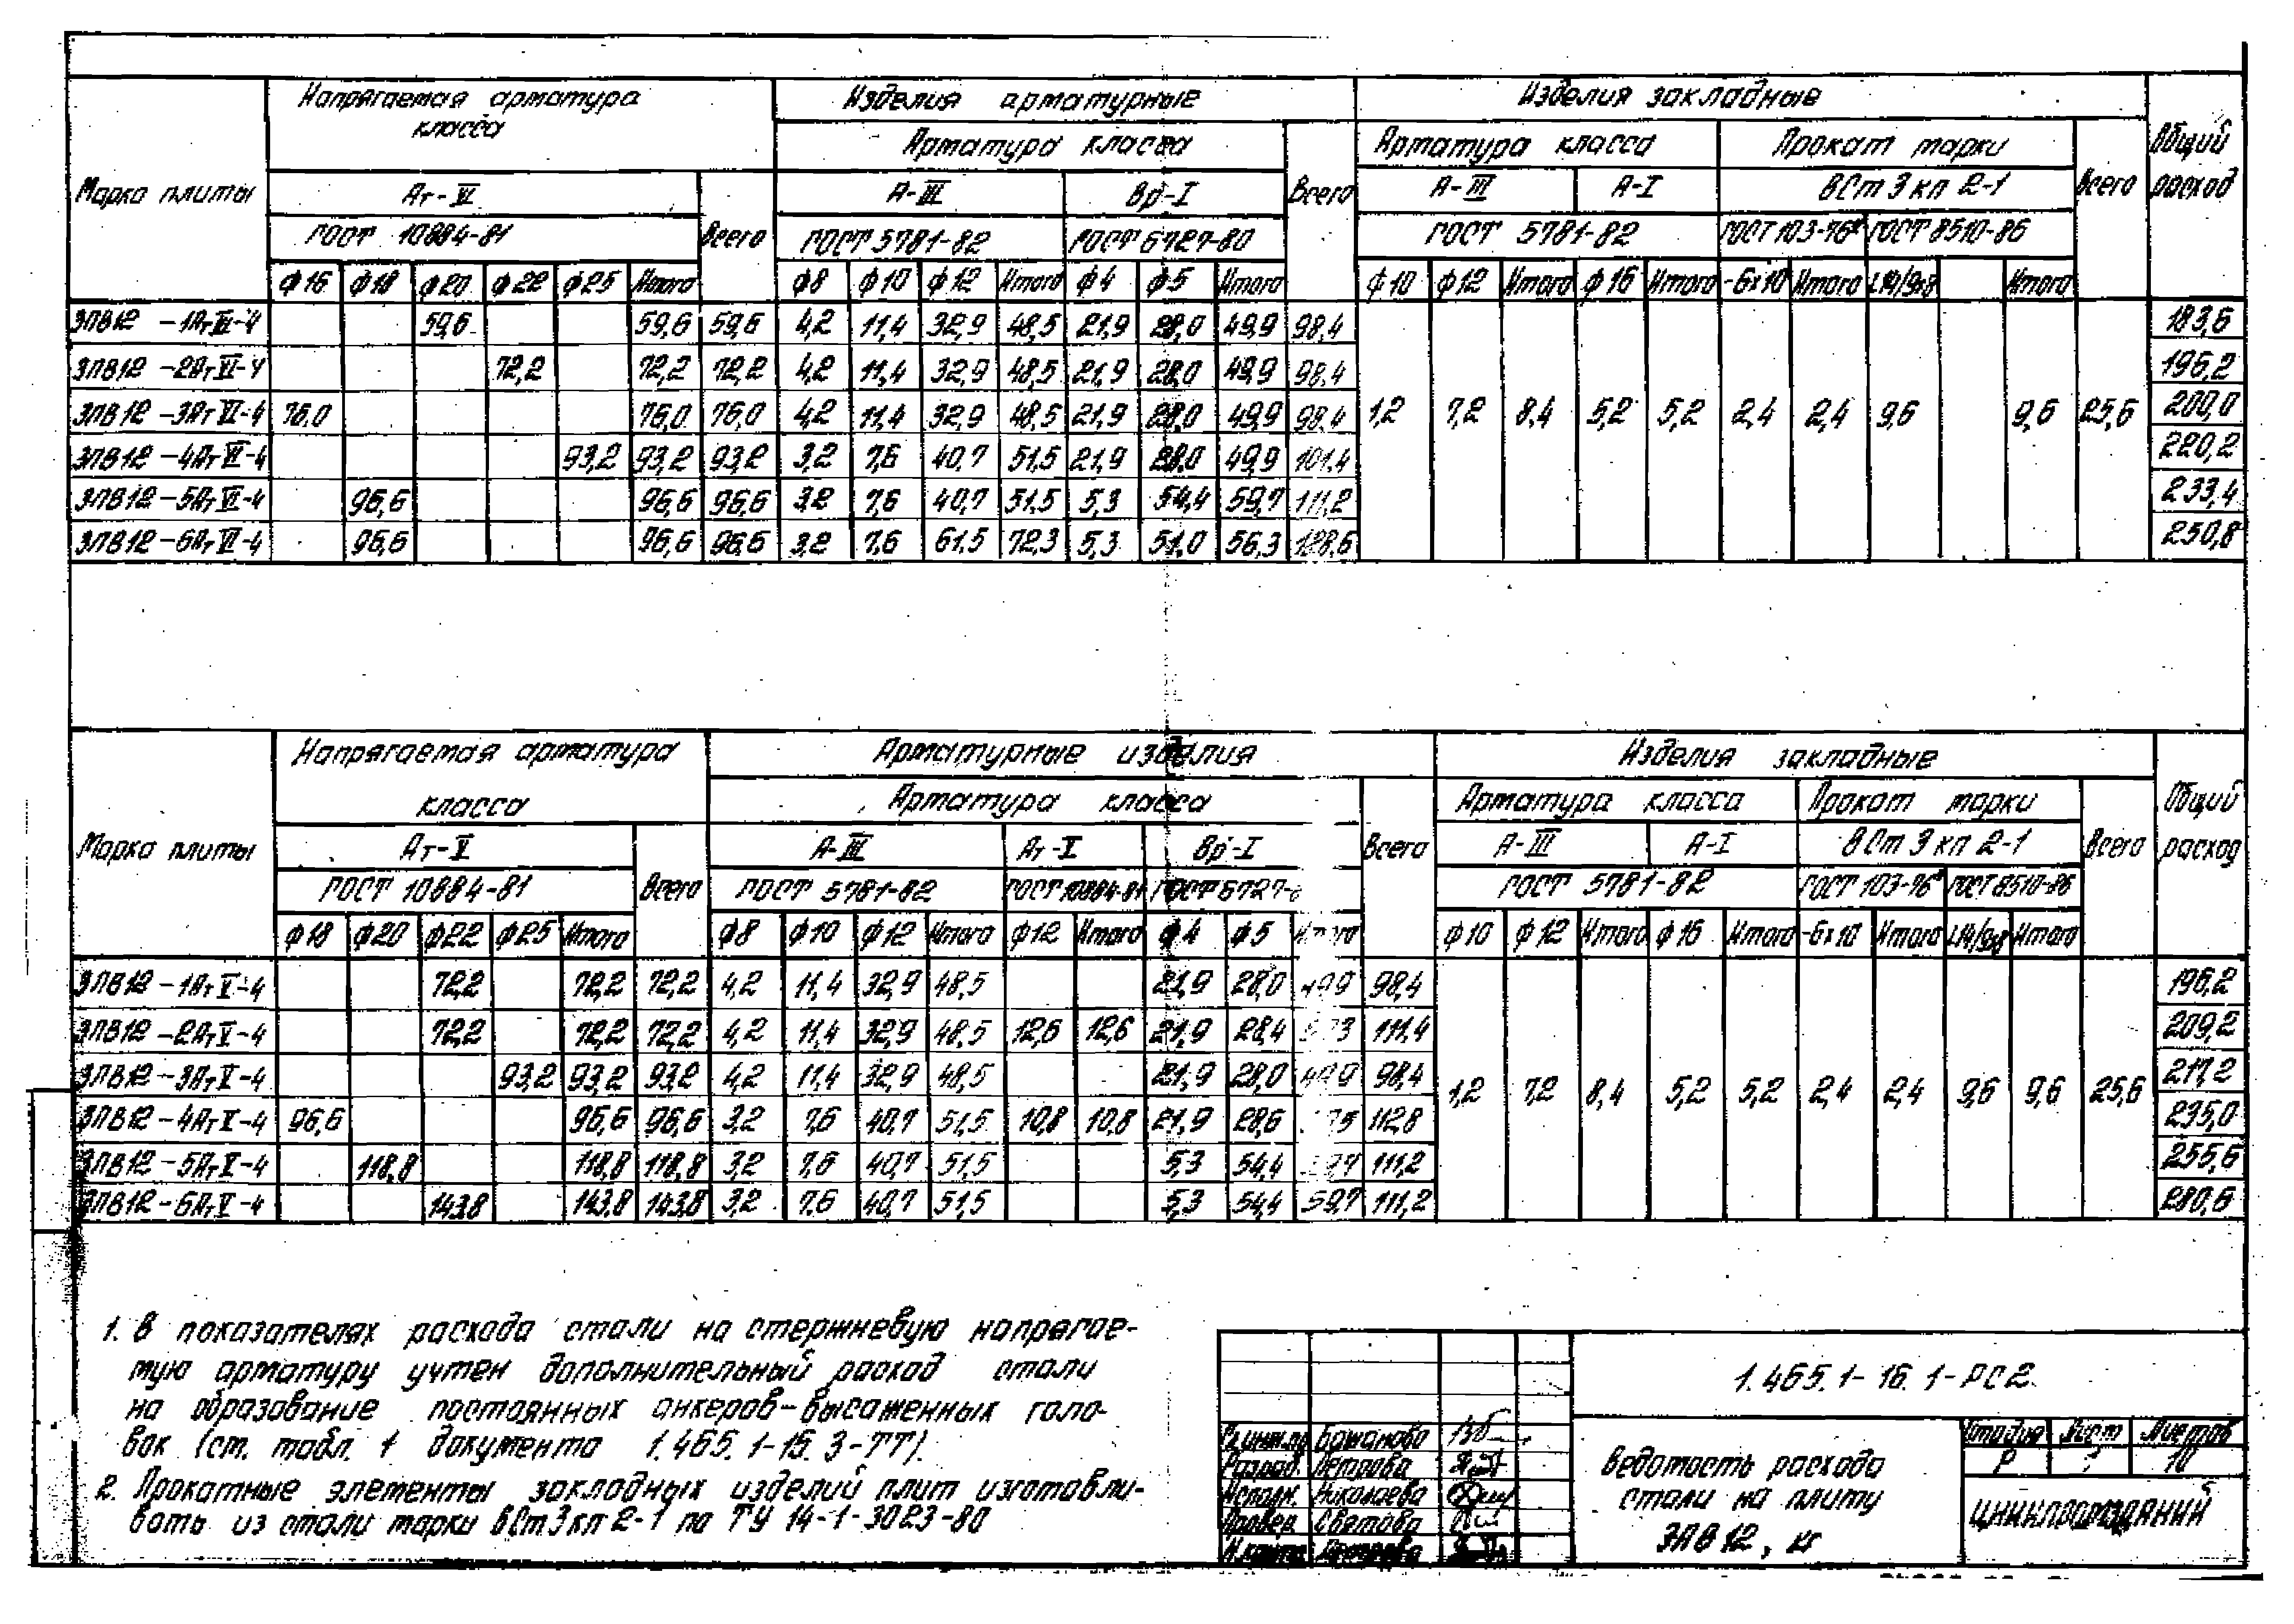 Напрягаемая арматура класса
Изделия арматурные
Изделия закладные
Общий расход
Арматура класса
Арматура класса
Прокат марки
Марка плиты
Ат-VI
Всего
А-III
Вр-I
Всего
А-III
А-I
ВСт 3 кп 2-1
Всего
ГОСТ 10884-81
ГОСТ 5781-82
ГОСТ 6727-80
ГОСТ 5781-82
ГОСТ 103-76*
ГОСТ 8510-86
ф16 ф18 ф20 ф22 ф25 Итого ф8 ф10 ф12 Итого ф4 ф5 Итого ф10 ф12 Итого ф16 Итого -6х10 Итого Итого
3ПВ12-1АтVI-4 59,6 59,6 59,6 4,2 11,4 32,9 48,5 21,9 28,0 49,9 98,4 183,6
3ПВ12-2АтVI-4 72,2 72,2 72,2 4,2 11,4 32,9 48,5 21,9 28,0 49,9 98,4 196,2
3ПВ12-3АтVI-4 76,0 76,0 76,0 4,2 11,4 32,9 48,5 21,9 28,0 49,9 98,4 1,2 7,2 8,4 5,2 5,2 2,4 2,4 9,6 9,6 25,6 200,0
3ПВ12-4АтVI-4 93,2 93,2 93,2 3,2 7,6 40,7 51,5 21,9 28,0 49,9 101,4 220,2
3ПВ12-5АтVI-4 96,6 96,6 96,6 3,2 7,6 40,7 51,5 5,3 54,4 59,7 111,2 233,4
3ПВ12-6АтVI-4 96,6 96,6 96,6 3,2 7,6 61,5 72,3 5,3 51,0 56,3 128,6 250,8
Напрягаемая арматура класса
Арматурные изделия
Изделия закладные
Общий расход
Арматура класса
Арматура класса
Прокат марки
Марка плиты
Ат-V
Всего
А-III
Ат-V
Вр-I
Всего
А-III
А-I
ВСт 3 кп 2-1
Всего
ГОСТ 10884-81
ГОСТ 5781-82
ГОСТ 10884-81
ГОСТ 6727-
ГОСТ 5781-82
ГОСТ 103-76*
ГОСТ 8510-86
ф18 ф20 ф22 ф25 Итого ф8 ф10 ф12 Итого ф12 Итого ф4 ф5 Итого ф10 ф12 Итого ф16 Итого -6х10 Итого Итого
3ПВ12-1АтV-4 72,2 72,2 72,2 4,2 11,4 32,9 48,5 21,9 28,0 98,4 196,2
3ПВ12-2АтV-4 72,2 72,2 72,2 4,2 11,4 32,9 48,5 12,6 12,6 21,9 28,4 111,4 209,2
3ПВ12-3АтV-4 93,2 93,2 93,2 4,2 11,4 32,9 48,5 21,9 28,0 98,4 1,2 7,2 8,4 5,2 5,2 2,4 2,4 9,6 9,6 25,6 217,2
3ПВ12-4АтV-4 96,6 96,6 96,6 3,2 7,6 40,7 51,5 10,8 10,8 21,9 28,6 112,8 235,0
3ПВ12-5АтV-4 118,8 118,8 118,8 3,2 7,6 40,7 51,5 5,3 54,4 111,2 255,6
3ПВ12-6АтV-4 143,8 143,8 143,8 3,2 7,6 40,7 51,5 5,3 54,4 59,7 111,2 280,6
1. В показателях расхода стали на стержневую напрягае-
мую арматуру учтен дополнительный расход стали
на образование постоянных анкеров-высаженных голо-
вок (см. табл. 1 документа 1.465.1-15.3-ТТ).
2. Прокатные элементы закладных изделий плит изготавли-
вать из стали марки ВСт3кп2-1 по ТУ 14-1-3023-80
1.465.1-16.1-РС2
Гл.инж.пр. Бажанова
Разраб. Петрова
Исполн. Николаева
Провер. Светова
Н.контр. Петрова
Ведомость расхода
стали на плиту
3ПВ12, кг
Стадия Лист Листов
Р 10
ЦНИИПРОМЗДАНИЙ